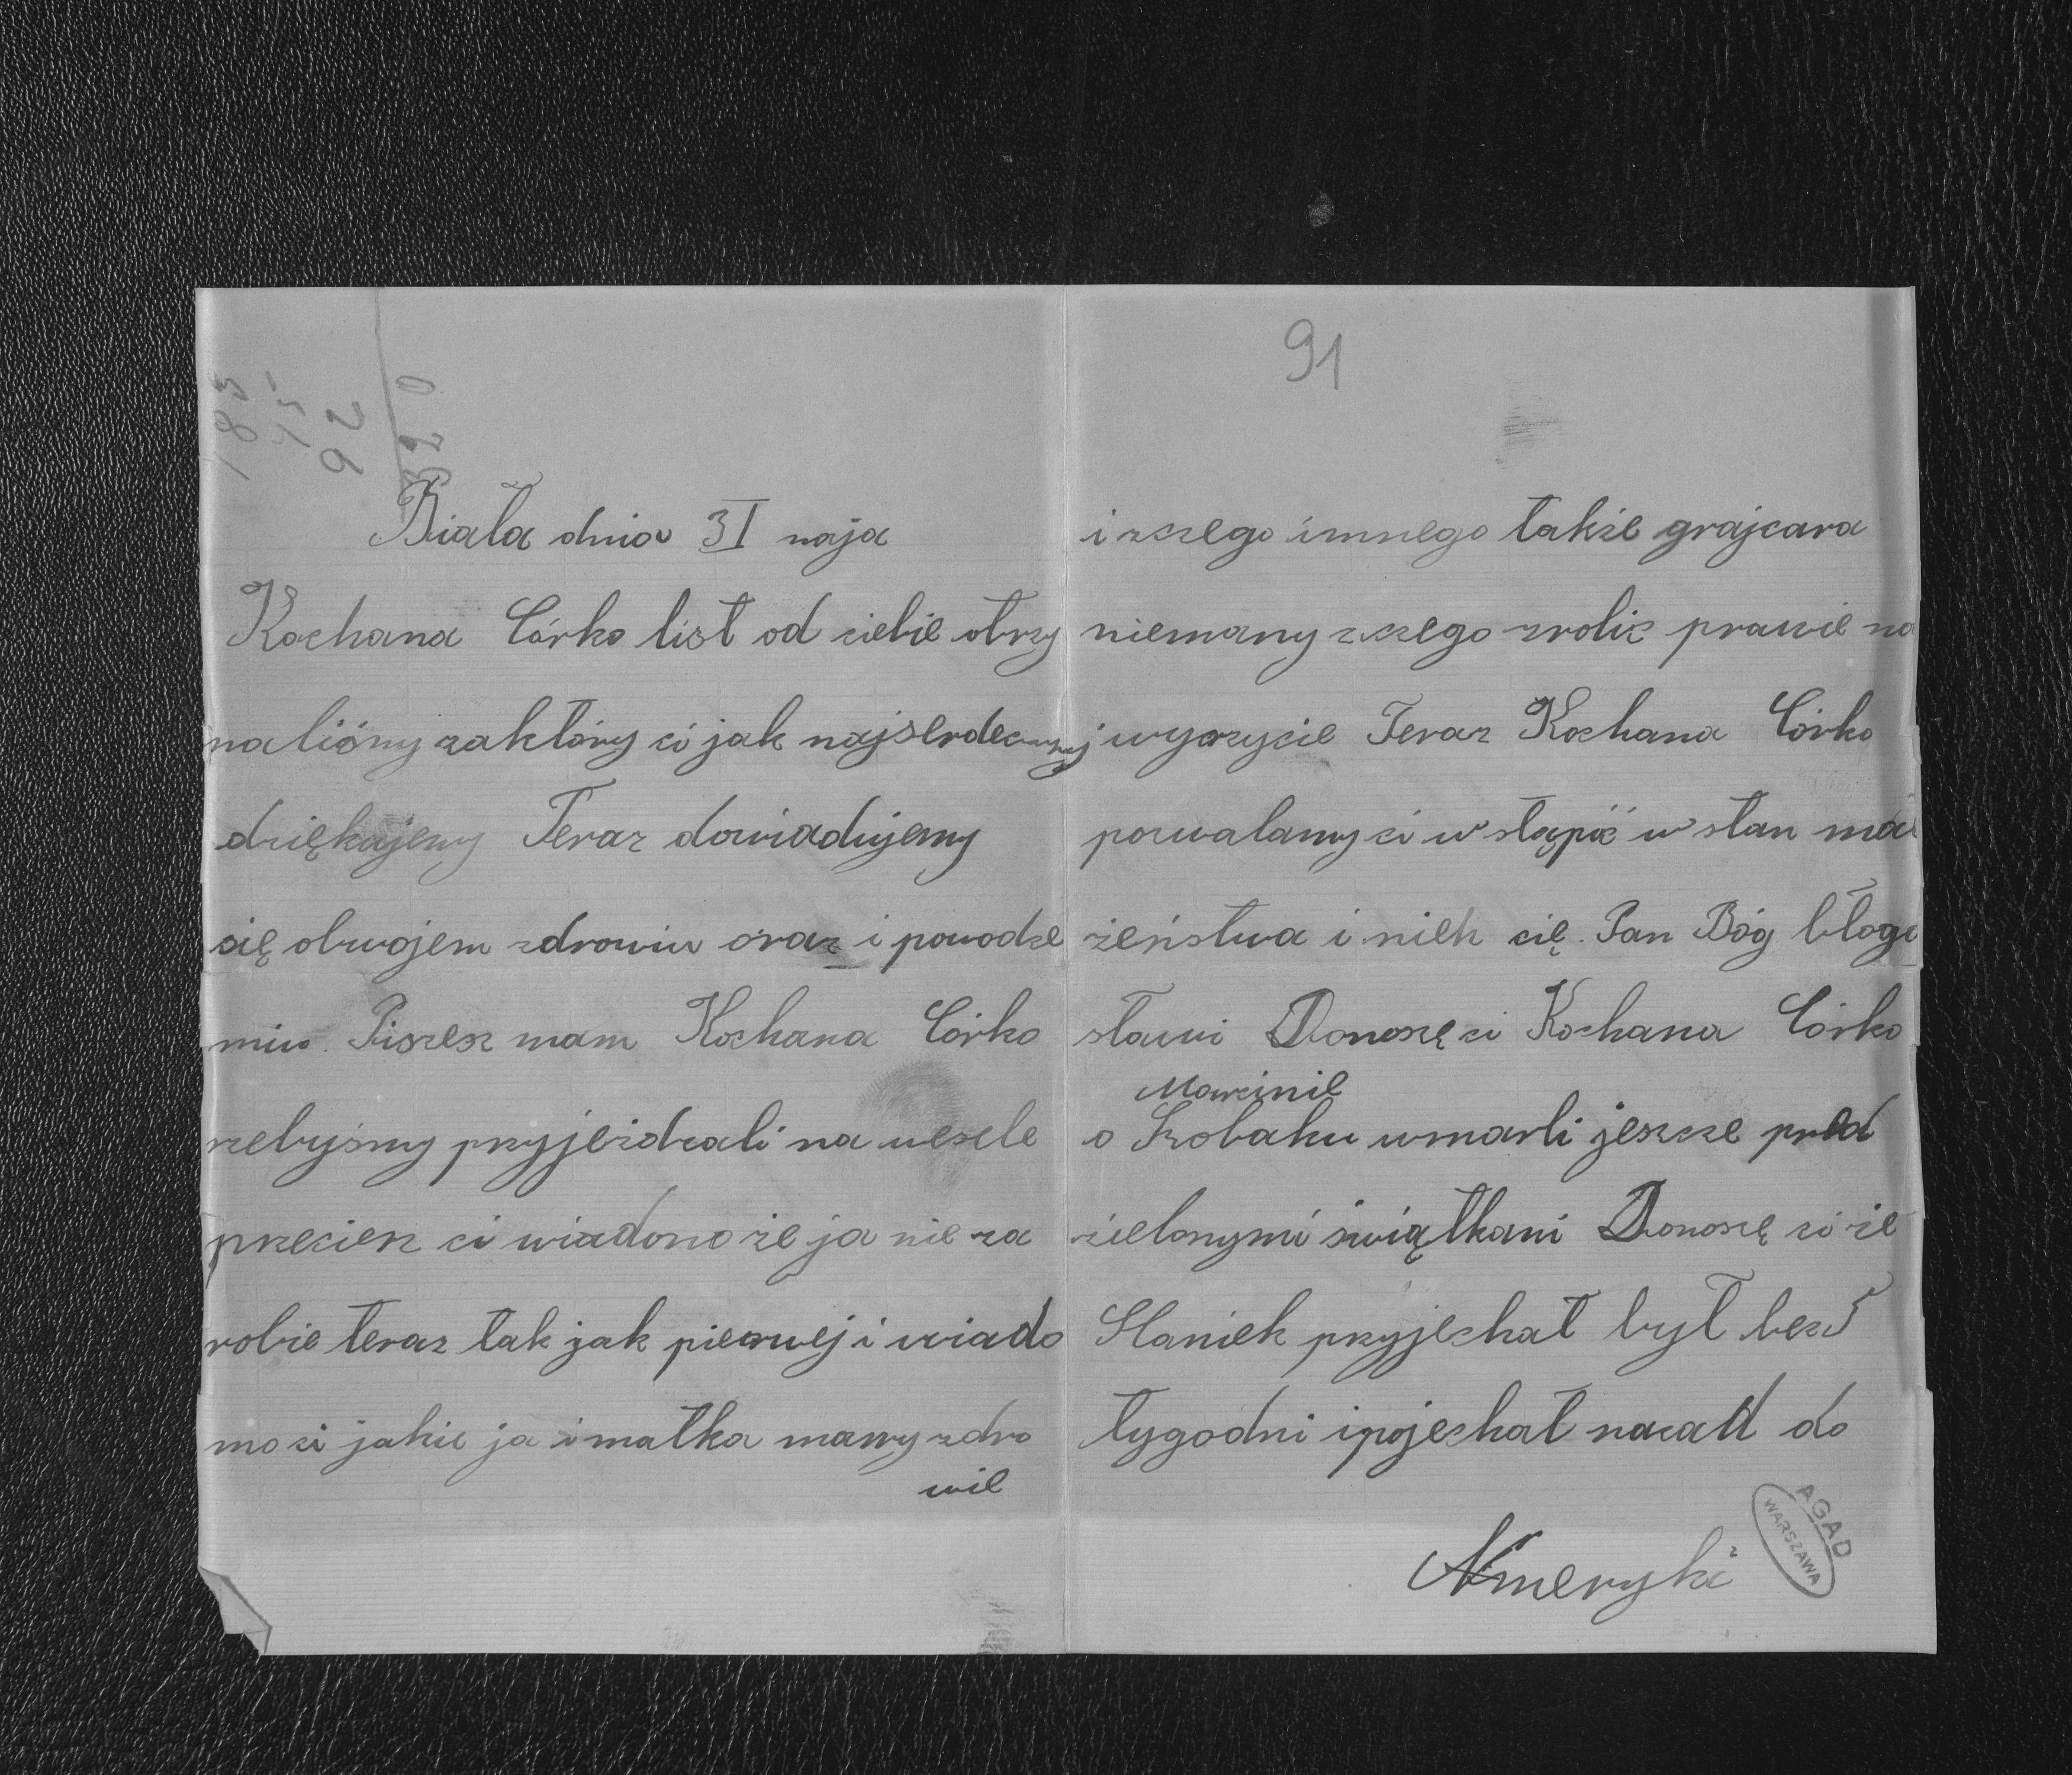 183
15
92
320
Biała dnia 31 naja
Kochana Córko list od ciebie otrzy
naliśny zaktóry ci jak najserdeczniej
dziękujemy Teraz dowiadujemy
się otwojem zdrowiu oraz i powodze
niu. Piszesz nam Kochana Córko
zebyśmy przyjeżdzali na uesele
przeciez ci wiadono że ja nie za
robie teraz tak jak pierwej i wiado
mo ci jakie ja i matka mamy zdro
wie
91
i zczego innego także grajcara
niemany zczego zrobic prawie na
wyrzycie Teraz Kochana Córko
pozwalamy ci w stąpić w stan mał
żeństwa i nieh cię Pan Bóg błogo
sławi Donoszę ci Kochana Córko
Marcinie
o Szobaku umarli jeszcze pred
zielonymi świątkani Donoszę ci że
Staniek przyjechał był bez 5
tygodni ipojechał nazad do
Ameryki
AGAD
WARSZAWA